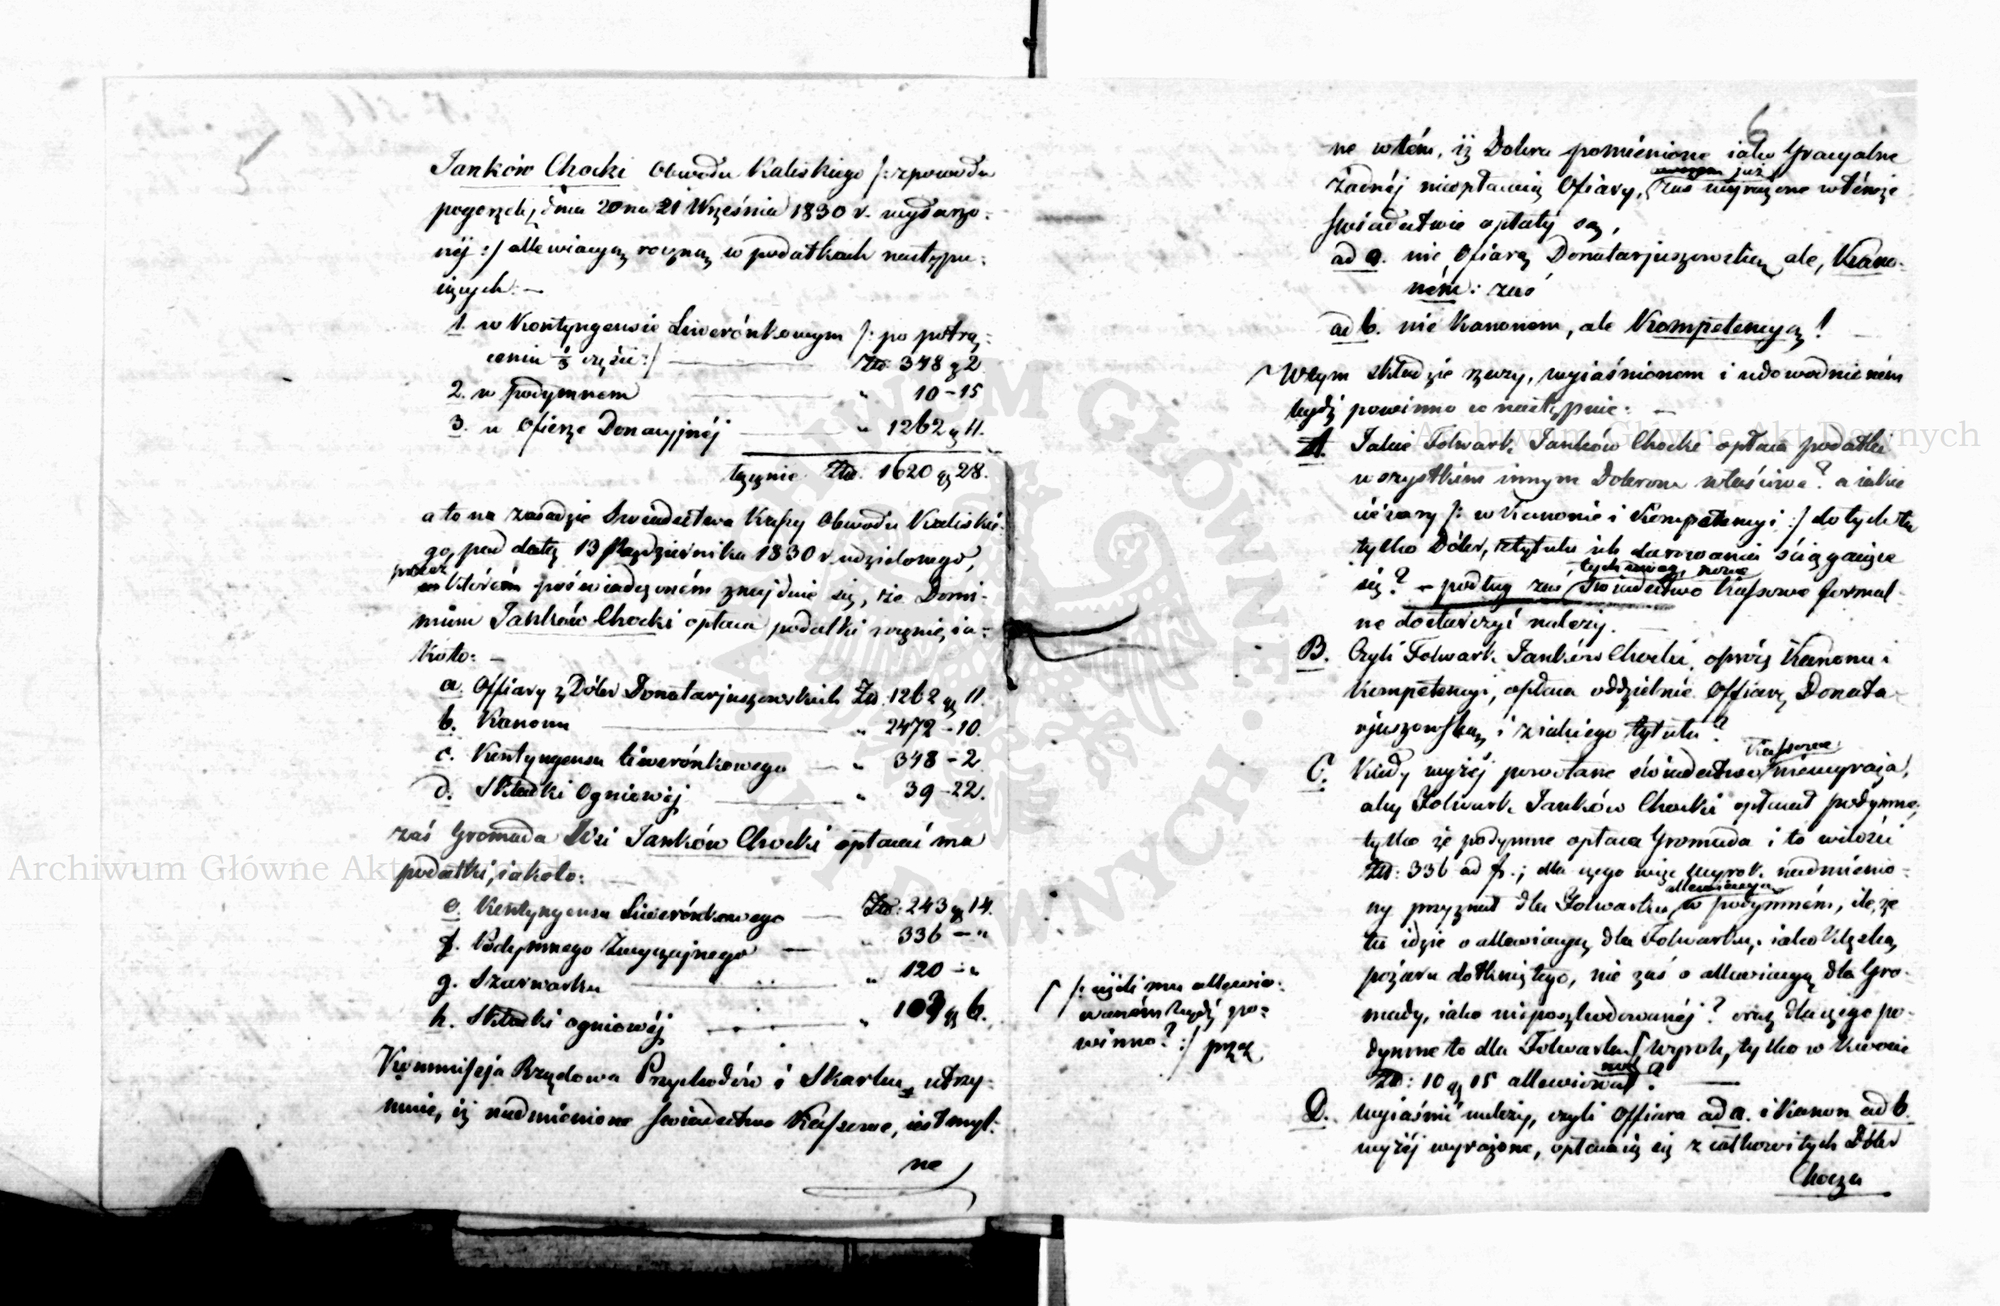 5
Janków Chocki Obwodu Kaliskiego /: z powodu
pogorzeli, dnia 20 na 21 Września 1830 r. wydarzo-
néj :/ allewiacyą roczną w podatkach następu-
iących: —
1. w Kontyngensie Liwerónkowym /: po potrą-
ceniu ⅓ części :/ — Złp. 348 g 2
2. w podymnem „ 10 – 15
3. w Ofierze Donacyjnéj — „ 1262 g 11.
łącznie Złp. 1620 g 28.
a to na zasadzie Świadectwa Kassy Obwodu Kaliskie-
go, pod datą 13 Października 1830 r. udzielonego,
przez
którém poświadczoném znajduie się, że Domi-
nium Janków Chocki opłaca podatki rocznie, ia-
koto: —
a. Offiary z Dóbr Donatarjuszowskich Złp. 1262 g 11.
b. Kanonu — „ 2472 – 10.
c. Kontyngensu liwerónkowego — „ 348 – 2
d. Składki Ogniowéj — „ 39 – 22.
zaś Gromada Wsi Janków Chocki opłacać ma
podatki, iakoto: —
e. Kontyngensu Liwerónkowego — Złp. 243 g 14.
f. Podymnego Zwyczajnego — „ 336 – „
g. Szarwarku — „ 120 – „
h. Składki ogniowéj — „ 103 g 6.
Kommissja Rządowa Przychodów i Skarbu, utrzy-
muie, iż nadmienione świadectwo Kassowe, iest myl-
ne
6
ne w tém, iż Dobra pomienione iako Gracyalne
żadnéj nieopłacaią Ofiary, zaś wyrażone w témże
świadectwie opłaty są,
ad a. nie Ofiarą Donatarjuszowską, ale, Kano-
ném: zaś
ad b. nie Kanonem, ale Kompetencyą!
W tym składzie rzeczy, wyiaśnionem i udowodnieném
bydź powinno co następuie: —
A. Jakie Folwark Janków Chocki opłaca podatki
wszystkim innym Dobrom właściwe? a iakie
ciężary /: w Kanonie i Kompetencyi :/ do tych to
tylko Dóbr, z tytułu ich darowania ściągaiące
się? — podług zaś tych uwag, nowe Świadectwo Kassowe formal-
ne dostarczyć należy. —
B. Czyli Folwark Janków Chocki, oprócz Kanonu i
Kompetencyi, opłaca oddzielnie Offiarę Donata-
rjuszowską, i z iakiego tytułu?
Kassowe
C. Kiedy wyżéj powołane świadectwo niewyraża,
aby Folwark Janków Chocki opłacał podymne,
tylko że podymne opłaca Gromada i to w ilości
Złp: 336 ad f.; dla czego więc wyrok nadmienio-
allewiacyą
ny przyznał dla Folwarku w podymném, ile, że
tu idzie o allewiacyą dla Folwarku, iako klęską
pożaru dotkniętego, nie zaś o allewiacyą dla Gro-
mady, iako nieposzkodowanéj? oraz dla czego po-
dymne to dla Folwarku wyrok, tylko w kwocie
Złp: 10 g 15 allewiował?
/: ieżeli mu allewio-
waném bydź po-
winno? :/ przez
D. Wyiaśnić należy, czyli Offiara ad a. i Kanon ad b.
wyżéj wyrażone, opłacaią się z całkowitych Dóbr
Chocza
Archiwum Główne Akt Dawnych
Archiwum Główne Akt Dawnych
ARCHIWUM GŁÓWNE AKT DAWNYCH